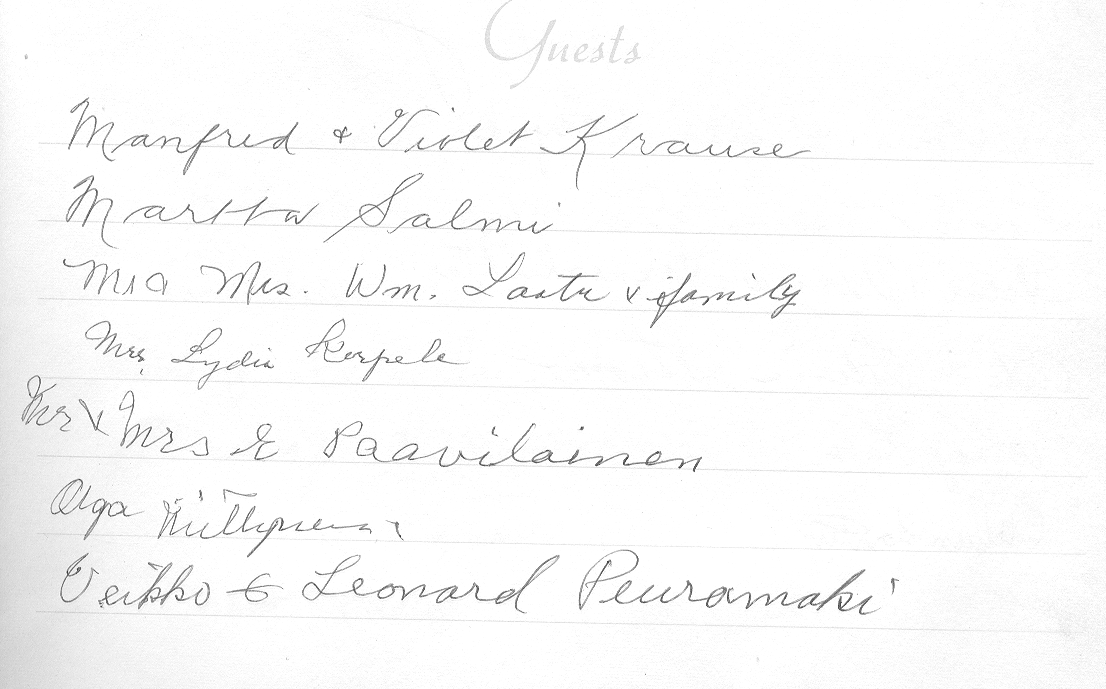 Guests
Manfred + Violet Krause
Martta Salmi
Mr & Mrs. Wm. Laate & family
Mrs. Lydia Korpela
Mr & Mrs E Paavilainen
Olga
Veikko & Leonard Peuramaki